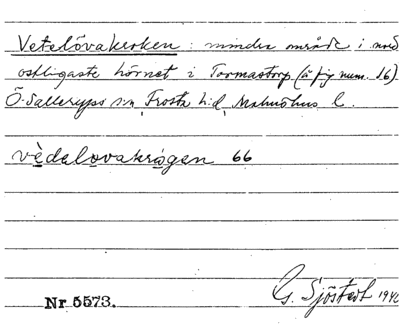 Vetelövakroken: mindre område i nord
ostligaste hörnet i Tormastorp (å fig num. 16)
Ö. Sallerups s:n, Frosta h:d, Malmöhus l.
vèdelovakrògen 66
Nr 5573.
G. Sjöstedt 1946